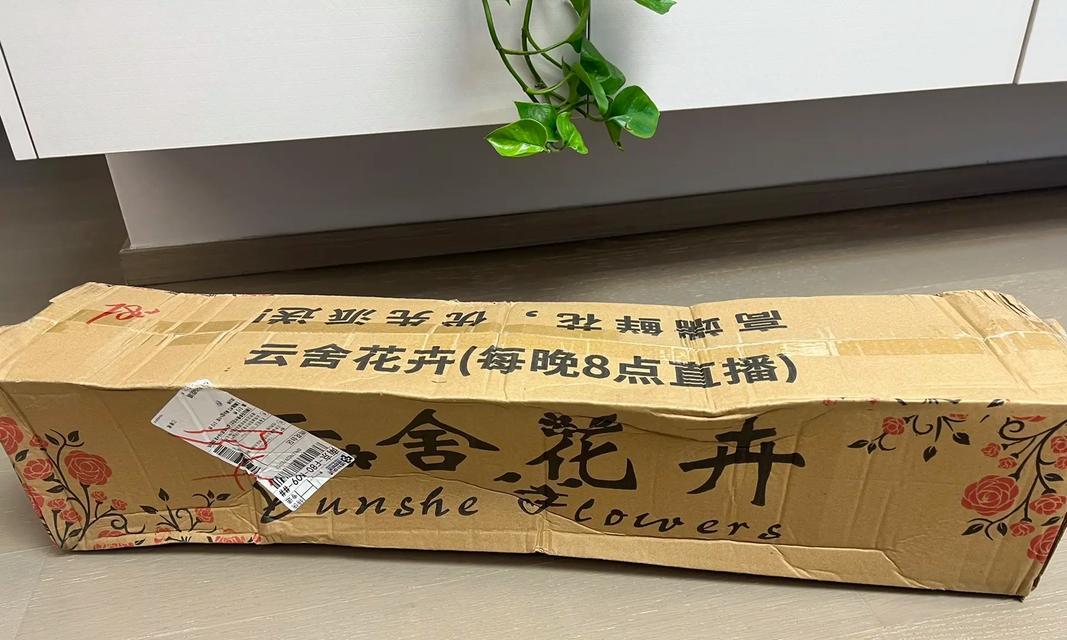 高端鲜花，优先派送!
云舍花卉(每晚8点直播)
云舍花卉
Yunshe Flowers